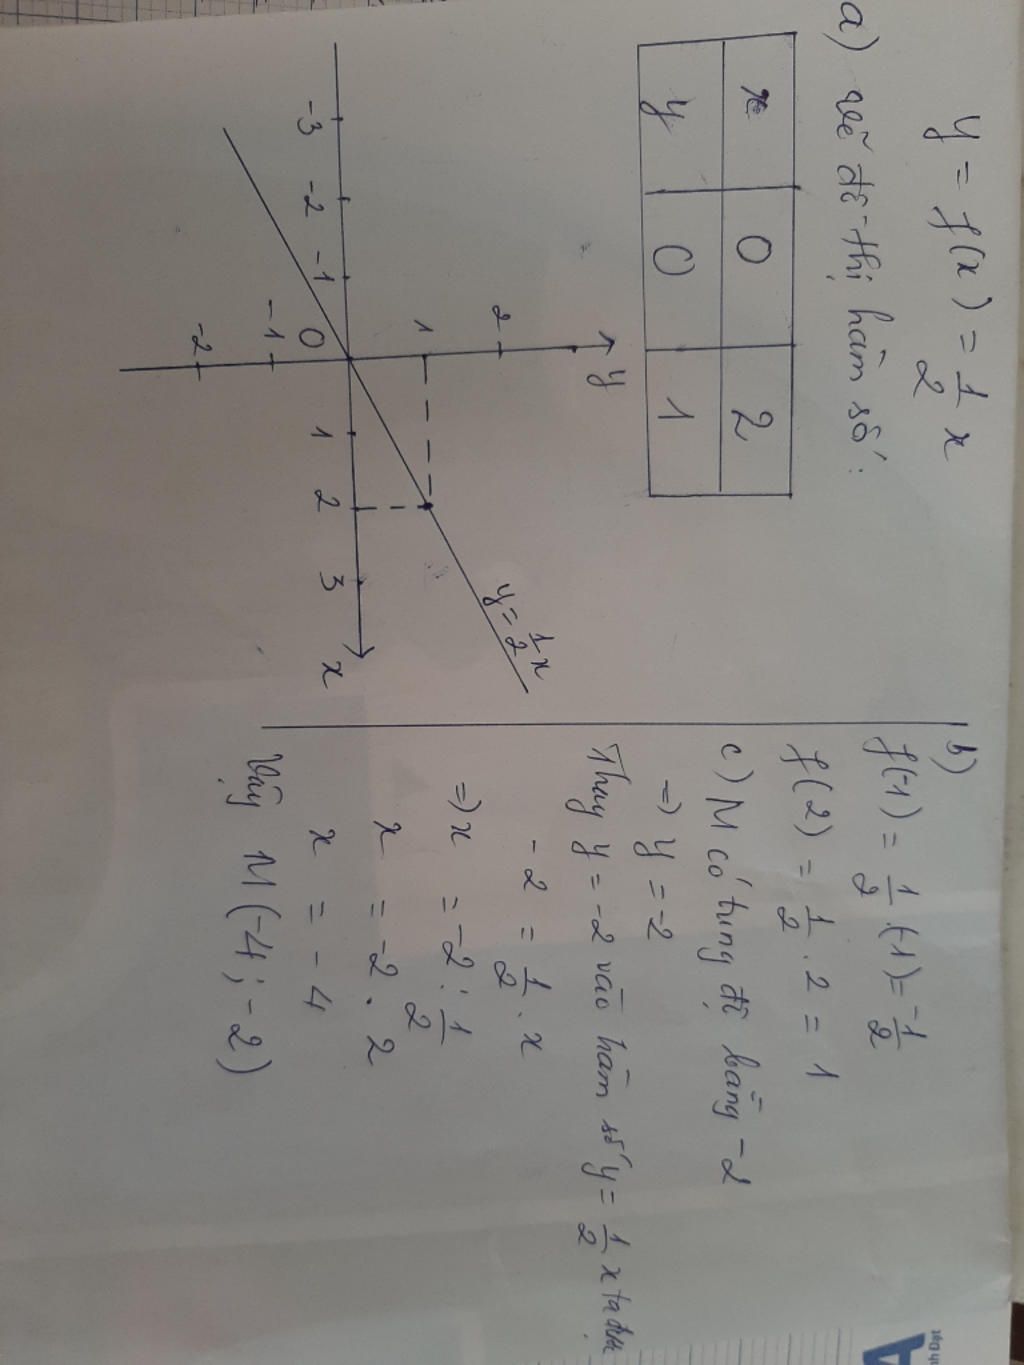 y = f(x) = 1/2 x
a) vẽ đồ thị hàm số:
x 0 2
y 0 1
y
2
1
-3 -2 -1 0 1 2 3 x
-1
-2
y = 1/2 x
b)
f(-1) = 1/2 .(-1) = -1/2
f(2) = 1/2 . 2 = 1
c) M có tung độ bằng -2
=) y = -2
Thay y = -2 vào hàm số y = 1/2 x ta được
-2 = 1/2 . x
=) x = -2 : 1/2
x = -2 . 2
x = -4
Vậy M(-4; -2)